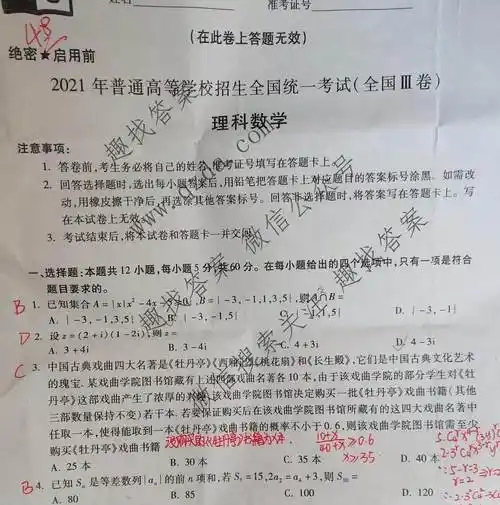 姓名 准考证号
(在此卷上答题无效)
绝密★启用前
2021年普通高等学校招生全国统一考试(全国Ⅲ卷)
理科数学
注意事项:
1. 答卷前,考生务必将自己的姓名、准考证号填写在答题卡上。
2. 回答选择题时,选出每小题答案后,用铅笔把答题卡上对应题目的答案标号涂黑。如需改
动,用橡皮擦干净后,再选涂其他答案标号。回答非选择题时,将答案写在答题卡上。写
在本试卷上无效。
3. 考试结束后,将本试卷和答题卡一并交回。
一、选择题:本题共12小题,每小题5分,共60分。在每小题给出的四个选项中,只有一项是符合
题目要求的。
B 1. 已知集合A={x|x²-4x-5 B={-3,-1,1,3,5},则A∩B=
A. {-3,-1,3,5} B. {-3,-1,5} 1,5} D. {-3,-1}
D 2. 设z=(2+i)(1-2i),则z=
A. 3+4i B. 3-4i C. 4+3i D. 4-3i
C 3. 中国古典戏曲四大名著是《牡丹亭》《西厢记》《桃花扇》和《长生殿》,它们是中国古典文化艺术
的瑰宝.某戏曲学院图书馆藏有上述四部戏曲名著各10本,由于该戏曲学院的部分学生对《牡
丹亭》这部戏曲产生了浓厚的兴趣,该戏曲学院图书馆决定购买一批《牡丹亭》戏曲书籍(其他
三部数量保持不变)若干本.若要保证购买后在该戏曲学院图书馆所藏有的这四大戏曲名著中
任取一本,使得能取到一本《牡丹亭》戏曲书籍的概率不小于0.6,则该戏曲学院图书馆需至少
购买《牡丹亭》戏曲书籍 10+x/40+x≥0.6
A. 25本 B. 30本 C. 35本 x≥35 D. 40本
B 4. 已知Sₙ是等差数列{aₙ}的前n项和,若S₅=15,2a₂=aₙ+3,则S₁₀=
A. 80 B. 85 C. 100 D. 120
趣找答案
微信公众号
微信搜索关注:趣找答案